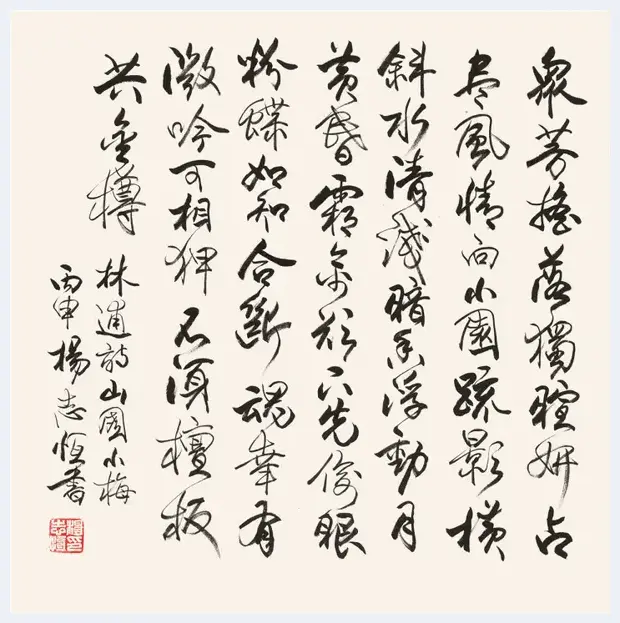 眾芳搖落獨暄妍占
盡風情向小園疏影橫
斜水清淺暗香浮動月
黃昏霜禽欲下先偷眼
粉蝶如知合斷魂幸有
微吟可相狎不須檀板
共金樽
林逋詩山園小梅
丙申楊志恒書